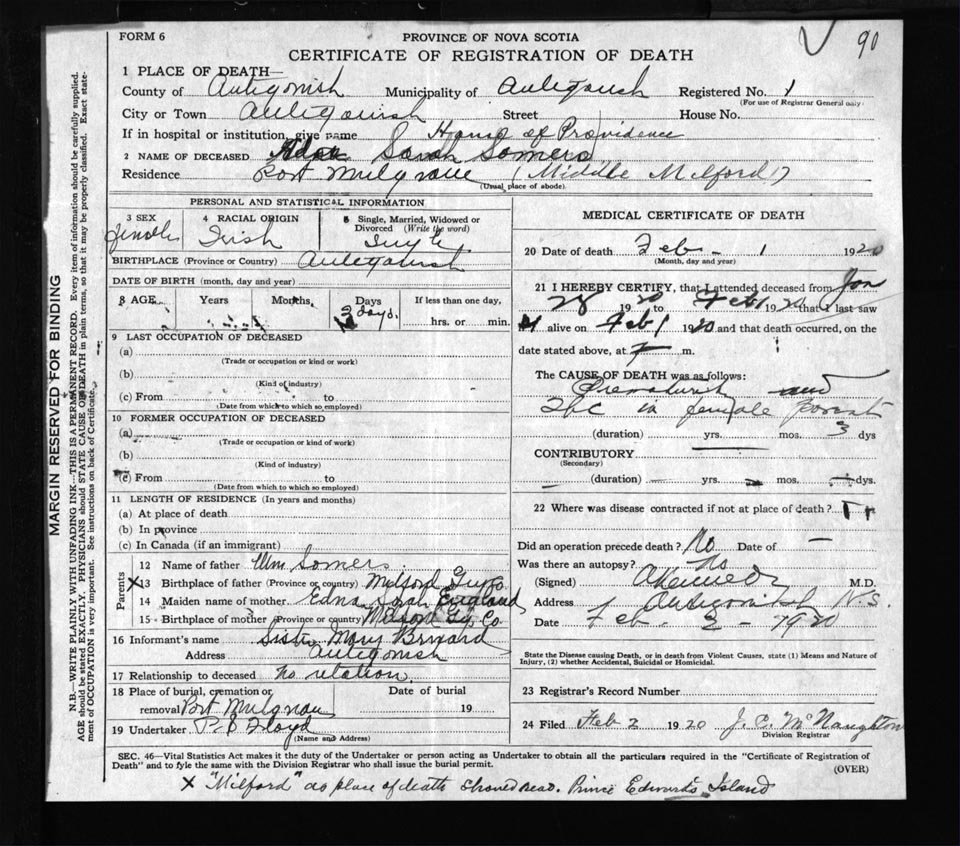 FORM 6
PROVINCE OF NOVA SCOTIA
90
CERTIFICATE OF REGISTRATION OF DEATH
1 PLACE OF DEATH—
County of Antigonish Municipality of Antigonish Registered No. 1
(For use of Registrar General only)
City or Town Antigonish Street House No.
If in hospital or institution, give name House of Providence
2 NAME OF DECEASED Sarah Somers
Residence Port Mulgrave (Middle Melford)
(Usual place of abode)
PERSONAL AND STATISTICAL INFORMATION
3 SEX Female 4 RACIAL ORIGIN Irish 5 Single, Married, Widowed or Divorced (Write the word) Single
BIRTHPLACE (Province or Country) Antigonish
DATE OF BIRTH (month, day and year)
8 AGE Years Months Days 3 days. If less than one day, hrs. or min.
9 LAST OCCUPATION OF DECEASED
(a)
(Trade or occupation or kind or work)
(b)
(Kind of industry)
(c) From to
(Date from which to which so employed)
10 FORMER OCCUPATION OF DECEASED
(a)
(Trade or occupation or kind of work)
(b)
(Kind of industry)
(c) From to
(Date from which to which so employed)
11 LENGTH OF RESIDENCE (In years and months)
(a) At place of death
(b) In province
(c) In Canada (if an immigrant)
Parents
12 Name of father Wm Somers
X 13 Birthplace of father (Province or country) Milford Guy Co.
14 Maiden name of mother Edna Sarah England
15 Birthplace of mother (Province or country) Milford Gy. Co.
16 Informant's name Sister Mary Bernard
Address Antigonish
17 Relationship to deceased No relation.
18 Place of burial, cremation or removal Port Mulgrave Date of burial 19
19 Undertaker P. Floyd
(Name and Address)
MEDICAL CERTIFICATE OF DEATH
20 Date of death Feb - 1 1920
(Month, day and year)
21 I HEREBY CERTIFY, that I attended deceased from Jan
28 1920 to Feb 1 1920 that I last saw
alive on Feb 1 1920 and that death occurred, on the
date stated above, at 7 m.
The CAUSE OF DEATH was as follows:
Tbc in female parent
(duration) yrs. mos. 3 dys
CONTRIBUTORY
(Secondary)
(duration) yrs. mos. dys.
22 Where was disease contracted if not at place of death?
Did an operation precede death? No Date of —
Was there an autopsy? No
(Signed) A Kennedy M.D.
Address Antigonish N.S.
Date Feb. 2 - 1920
State the Disease causing Death, or in death from Violent Causes, state (1) Means and Nature of Injury, (2) whether Accidental, Suicidal or Homicidal.
23 Registrar's Record Number
24 Filed Feb 2 1920 J. C. McNaughton
Division Registrar
SEC. 46—Vital Statistics Act makes it the duty of the Undertaker or person acting as Undertaker to obtain all the particulars required in the "Certificate of Registration of
Death" and to fyle the same with the Division Registrar who shall issue the burial permit.
(OVER)
X "Milford" as place of death should read. Prince Edward's Island
MARGIN RESERVED FOR BINDING
N.B.—WRITE PLAINLY WITH UNFADING INK—THIS IS A PERMANENT RECORD. Every item of information should be carefully supplied.
AGE should be stated EXACTLY. PHYSICIANS should STATE CAUSE OF DEATH in plain terms, so that it may be properly classified. Exact state-
ment of OCCUPATION is very important. See instructions on back of Certificate.